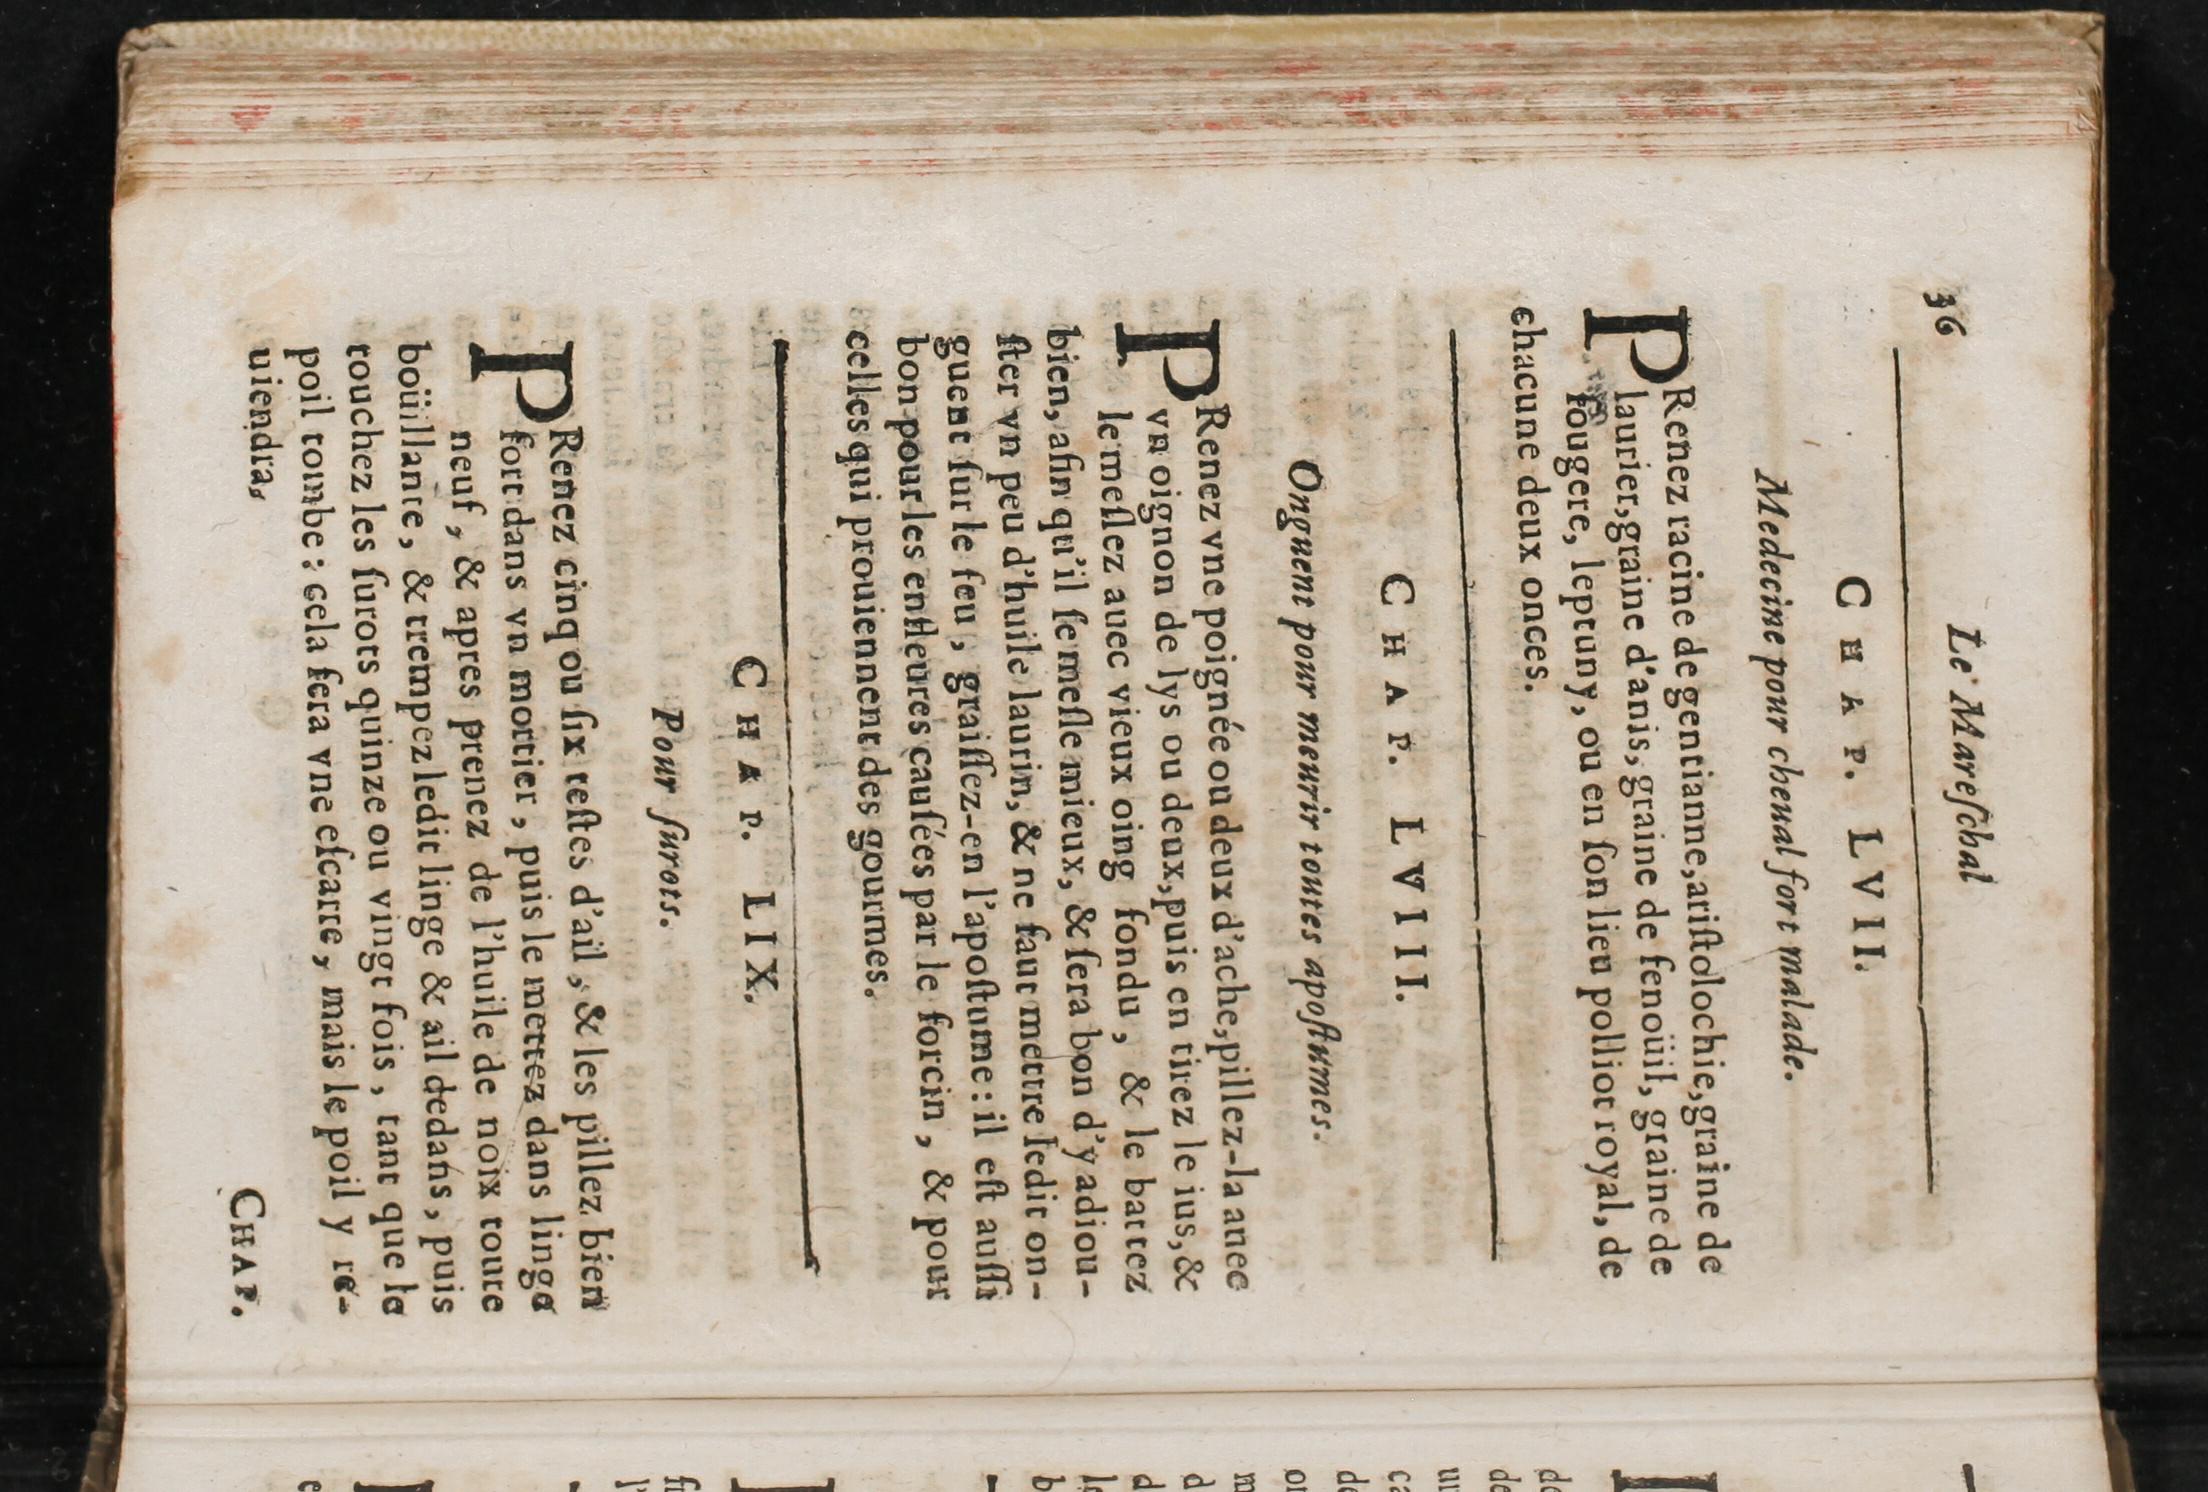 36 Le Mareſchal
CHAP. LVII.
Medecine pour cheual fort malade.
PRenez racine de gentianne, ariſtolochie, graine de
laurier, graine d'anis, graine de fenoüil, graine de
fougere, leptuny, ou en ſon lieu polliot royal, de
chacune deux onces.
CHAP. LVIII.
Onguent pour meurir toutes apoſtumes.
PRenez vne poignée ou deux d'ache, pillez-la auec
vn oignon de lys ou deux, puis en tirez le ius, &
le meſlez auec vieux oing fondu, & le battez
bien, afin qu'il ſe meſle mieux, & ſera bon d'y adiou-
ſter vn peu d'huile laurin, & ne faut mettre ledit on-
guent ſur le feu, graiſſez-en l'apoſtume : il eſt auſſi
bon pour les enfleures cauſées par le forcin, & pour
celles qui prouiennent des gourmes.
CHAP. LIX.
Pour ſurots.
PRenez cinq ou ſix teſtes d'ail, & les pillez bien
fort dans vn mortier, puis le mettez dans linge
neuf, & apres prenez de l'huile de noix toute
boüillante, & trempez ledit linge & ail dedans, puis
touchez les ſurots quinze ou vingt fois, tant que le
poil tombe : cela fera vne eſcarre, mais le poil y re-
uiendra,
CHAP.